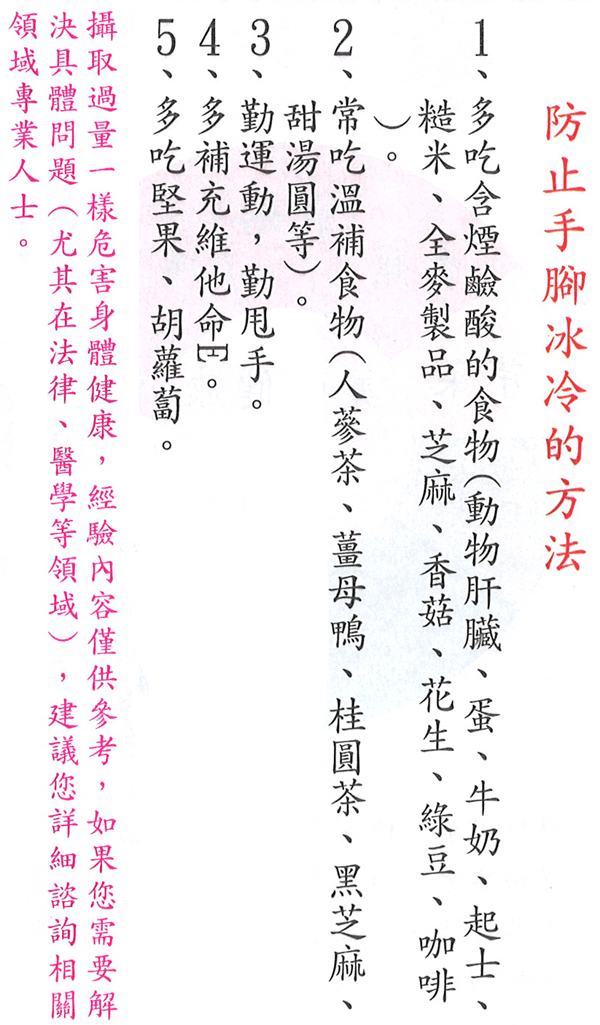 防止手腳冰冷的方法
1、多吃含煙鹼酸的食物(動物肝臟、蛋、牛奶、起士、
糙米、全麥製品、芝麻、香菇、花生、綠豆、咖啡
)。
2、常吃溫補食物(人蔘茶、薑母鴨、桂圓茶、黑芝麻、
甜湯圓等)。
3、勤運動，勤甩手。
4、多補充維他命E。
5、多吃堅果、胡蘿蔔。
攝取過量一樣危害身體健康，經驗內容僅供參考，如果您需要解
決具體問題(尤其在法律、醫學等領域)，建議您詳細諮詢相關
領域專業人士。